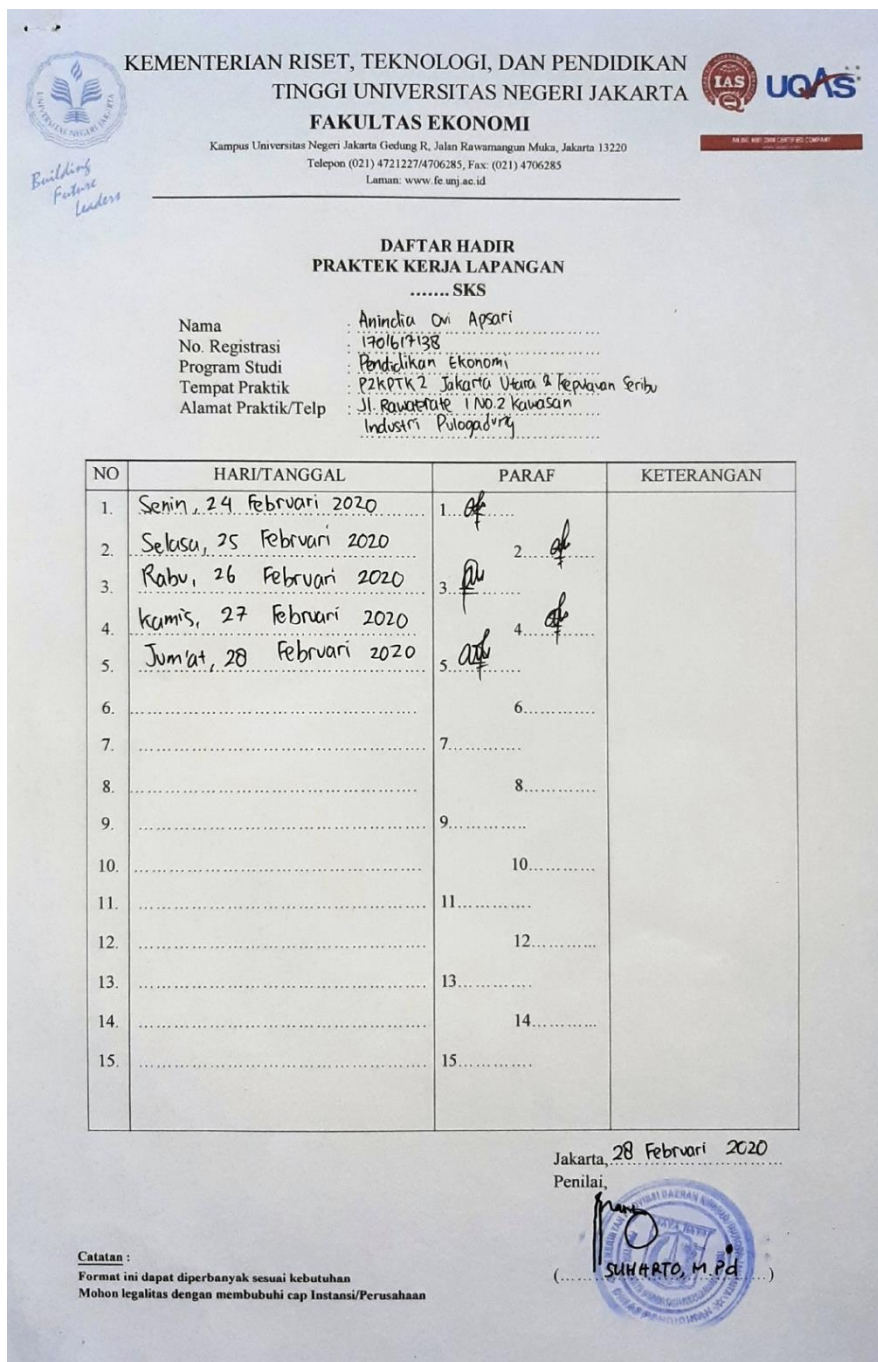 KEMENTERIAN RISET, TEKNOLOGI, DAN PENDIDIKAN
TINGGI UNIVERSITAS NEGERI JAKARTA
FAKULTAS EKONOMI
Kampus Universitas Negeri Jakarta Gedung R, Jalan Rawamangun Muka, Jakarta 13220
Telepon (021) 4721227/4706285, Fax: (021) 4706285
Laman: www.fe.unj.ac.id
UNIVERSITAS NEGERI JAKARTA
Building
Future
Leaders
IAS
UQAS
DAFTAR HADIR
PRAKTEK KERJA LAPANGAN
....... SKS
Nama : Anindia Ovi Apsari
No. Registrasi : 1701617138
Program Studi : Pendidikan Ekonomi
Tempat Praktik : P2KPTK2 Jakarta Utara & Kepulauan Seribu
Alamat Praktik/Telp : Jl. Rawaterate 1 No.2 Kawasan
Industri Pulogadung
NO HARI/TANGGAL PARAF KETERANGAN
1. Senin, 24 Februari 2020 1.
2. Selasa, 25 Februari 2020 2.
3. Rabu, 26 Februari 2020 3.
4. Kamis, 27 Februari 2020 4.
5. Jum'at, 28 Februari 2020 5.
6. 6.
7. 7.
8. 8.
9. 9.
10. 10.
11. 11.
12. 12.
13. 13.
14. 14.
15. 15.
Jakarta, 28 Februari 2020
Penilai,
JAYA RAYA
(SUHARTO, M.Pd)
Catatan :
Format ini dapat diperbanyak sesuai kebutuhan
Mohon legalitas dengan membubuhi cap Instansi/Perusahaan